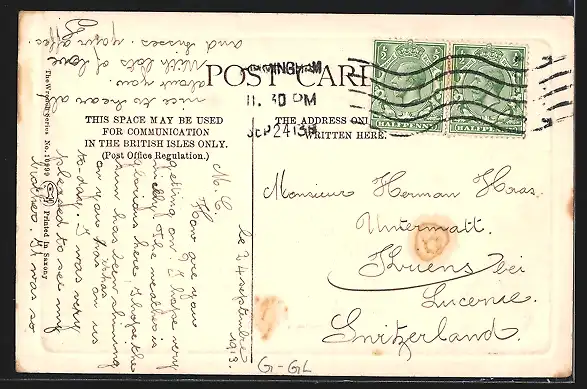 POST CARD
THIS SPACE MAY BE USED
FOR COMMUNICATION
IN THE BRITISH ISLES ONLY.
(Post Office Regulation.)
THE ADDRESS ONLY
WRITTEN HERE.
11.30 PM
SEP 24 13
HALFPENNY
HALFPENNY
Monsieur Herman Haas
Untermatt.
Kriens bei
Lucerne
Switzerland.
le 24 septembre
1913.
M. C.
How are you
getting on? I hope very
nicely. The weather is
glorious here, I hope the
sun has been shining
on you as it has on us
to-day. I was very
pleased to see my
brother. It was so
nice to hear all
about you.
With lots of love
and kisses. your affec.
The Wrench Series No. 10999
Printed in Saxony
G-GL